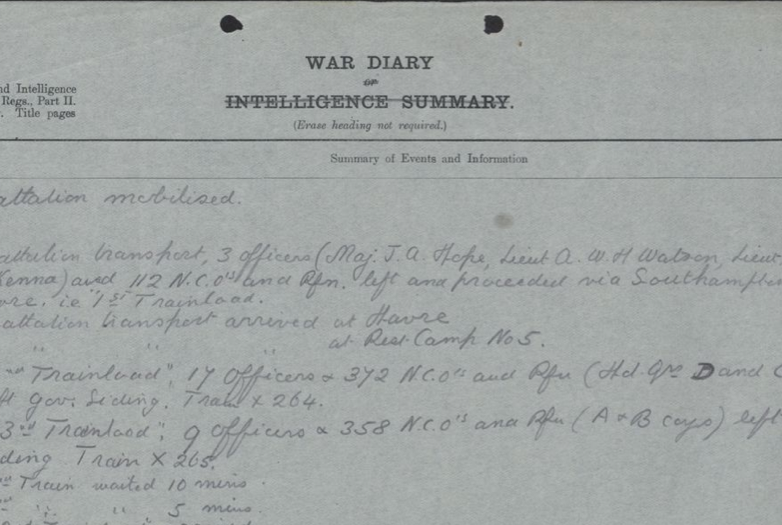 WAR DIARY
or
INTELLIGENCE SUMMARY.
(Erase heading not required.)
nd Intelligence
Regs., Part II.
. Title pages
Summary of Events and Information
attalion mobilised.
attalion transport, 3 officers (Maj. J. A. Hope, Lieut A. W. H Watson, Lieut,
Kenna) and 112 N.C.O's and Rfn. left and proceeded via Southampton
vre. i.e "1st Trainload.
attalion transport arrived at Havre
" " " at Rest Camp No 5.
"nd Trainload", 17 Officers & 372 N.C.O's and Rfn (Hd. Qrs D and C
ft Gov. Siding. Train X 264.
3rd Trainload", 9 Officers & 358 N.C.O's and Rfn (A & B coys) left
ding Train X 265.
nd Train waited 10 mins.
" " 5 mins.